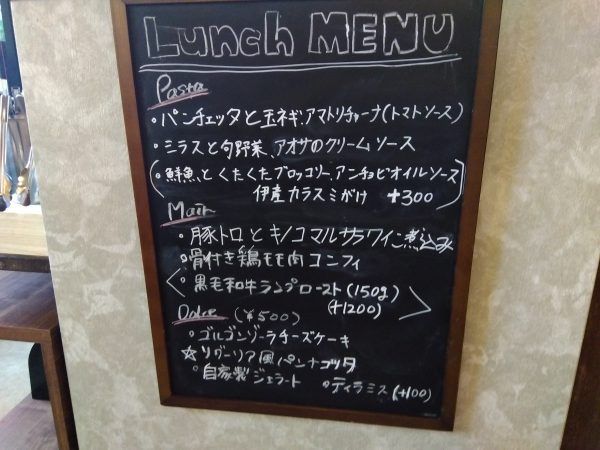 Lunch MENU
Pasta
・パンチェッタと玉ネギ、アマトリチャーナ(トマトソース)
・シラスと旬野菜、アオサのクリームソース
(・鮮魚、とくたくたブロッコリー、アンチョビオイルソース
伊産カラスミがけ +300)
Main
・豚トロとキノコマルサラワイン煮込み
・骨付き鶏モモ肉コンフィ
<・黒毛和牛ランプロースト(150g)
(+1200)>
Dolce (¥500)
・ゴルゴンゾーラチーズケーキ
☆リグーリア風パンナコッタ
・自家製ジェラート ・ティラミス(+100)